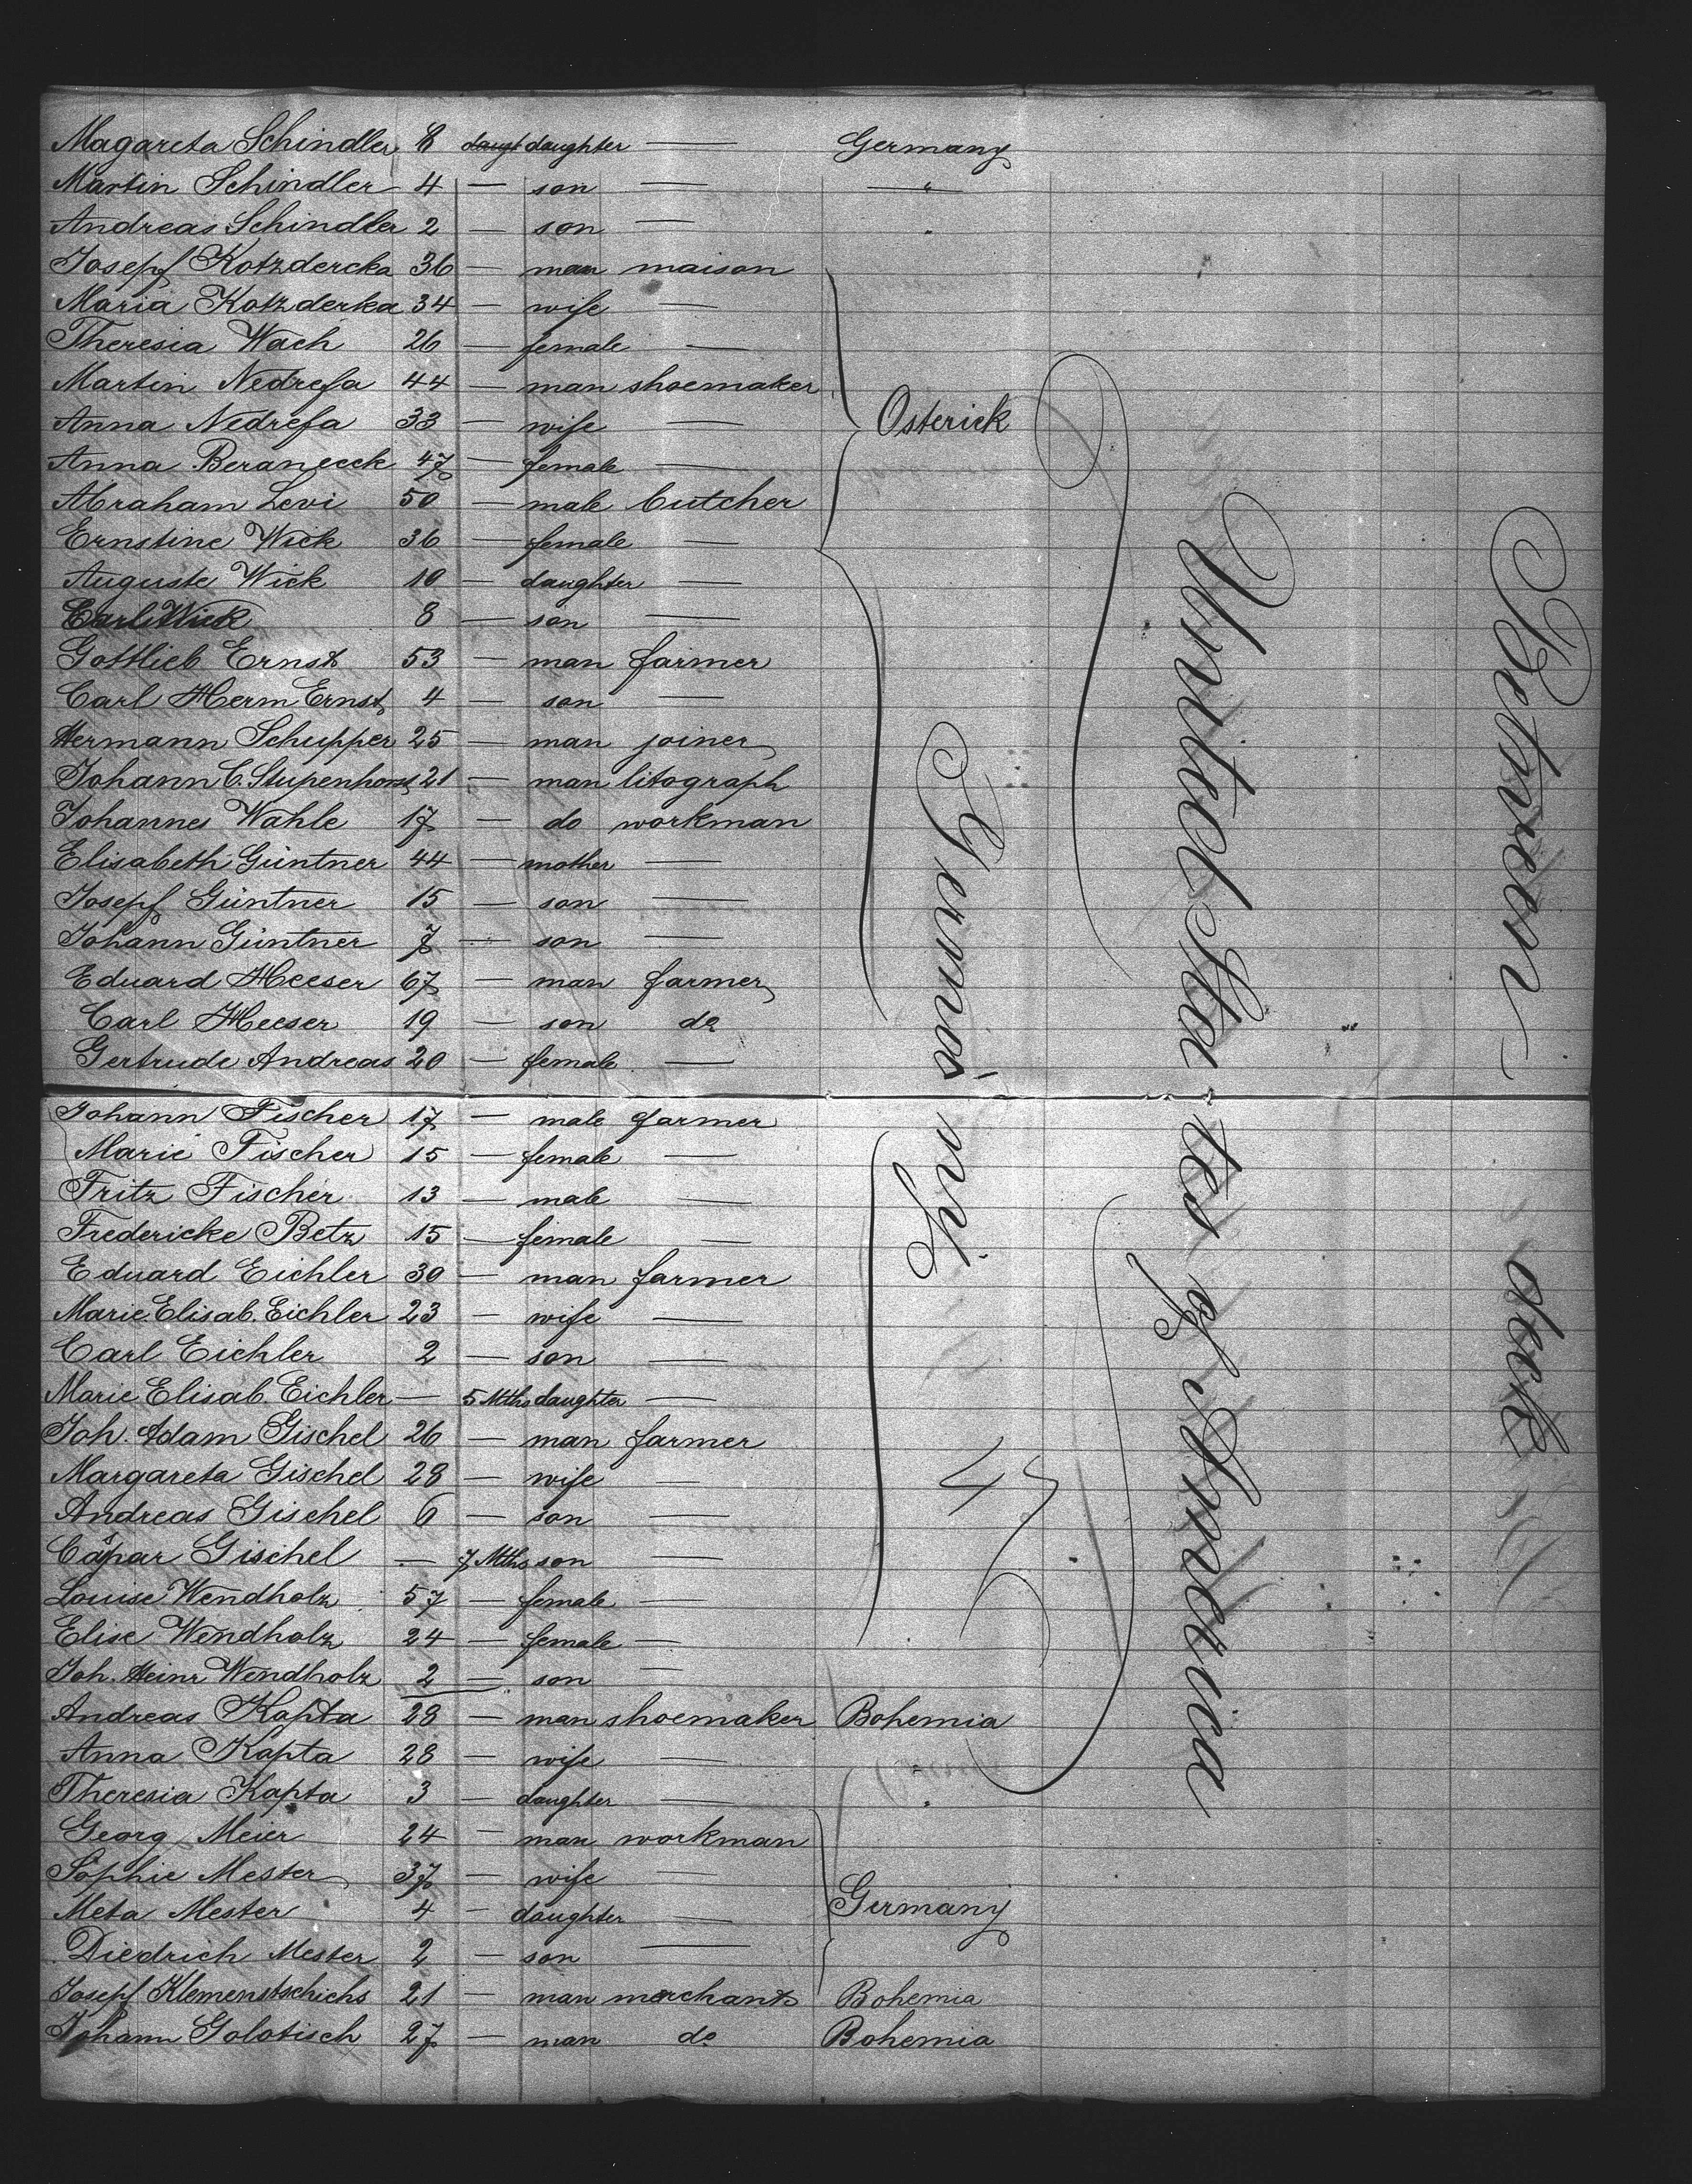 Magareta Schindler 8 daugt daughter — Germany
Martin Schindler 4 — son — "
Andreas Schindler 2 — son — "
Josepf Kotzdercka 36 — man maison
Maria Kotzderka 34 — wife —
Theresia Wach 26 — female —
Martin Nedrefa 44 — man shoemaker
Anna Nedrefa 33 — wife — Osterick
Anna Beranecck 47 — female —
Abraham Levi 50 — male butcher
Ernstine Wick 36 — female —
Auguste Wick 10 — daughter —
Carl Wick 8 — son —
Gottlieb Ernst 53 — man farmer
Carl Herm Ernst 4 — son —
Hermann Schupper 25 — man joiner
Johann C. Stupenhorst 21 — man litograph
Johannes Wahle 17 — do workman
Elisabeth Güntner 44 — mother —
Josepf Güntner 15 — son —
Johann Güntner 7 — son —
Eduard Heeser 67 — man farmer
Carl Heeser 19 — son do
Gertrude Andreas 20 — female —
Johann Fischer 17 — male farmer
Marie Fischer 15 — female —
Fritz Fischer 13 — male —
Fredericke Betz 15 — female —
Eduard Eichler 30 — man farmer
Marie Elisab. Eichler 23 — wife —
Carl Eichler 2 — son —
Marie Elisab. Eichler — 5 Mths daughter —
Joh. Adam Gischel 26 — man farmer
Margareta Gischel 28 — wife —
Andreas Gischel 6 — son —
Caspar Gischel — 7 Mths son —
Louise Wendholz 57 — female —
Elise Wendholz 24 — female —
Joh. Heinr Wendholz 2 — son —
Andreas Kapta 28 — man shoemaker Bohemia
Anna Kapta 28 — wife — "
Theresia Kapta 3 — daughter — "
Georg Meier 24 — man workman
Sophie Mester 37 — wife —
Meta Mester 4 — daughter — Germany
Diedrich Mester 2 — son —
Josepf Klemenstschichs 21 — man merchant Bohemia
Johann Golotisch 27 — man do Bohemia
Germany
47
United States of America